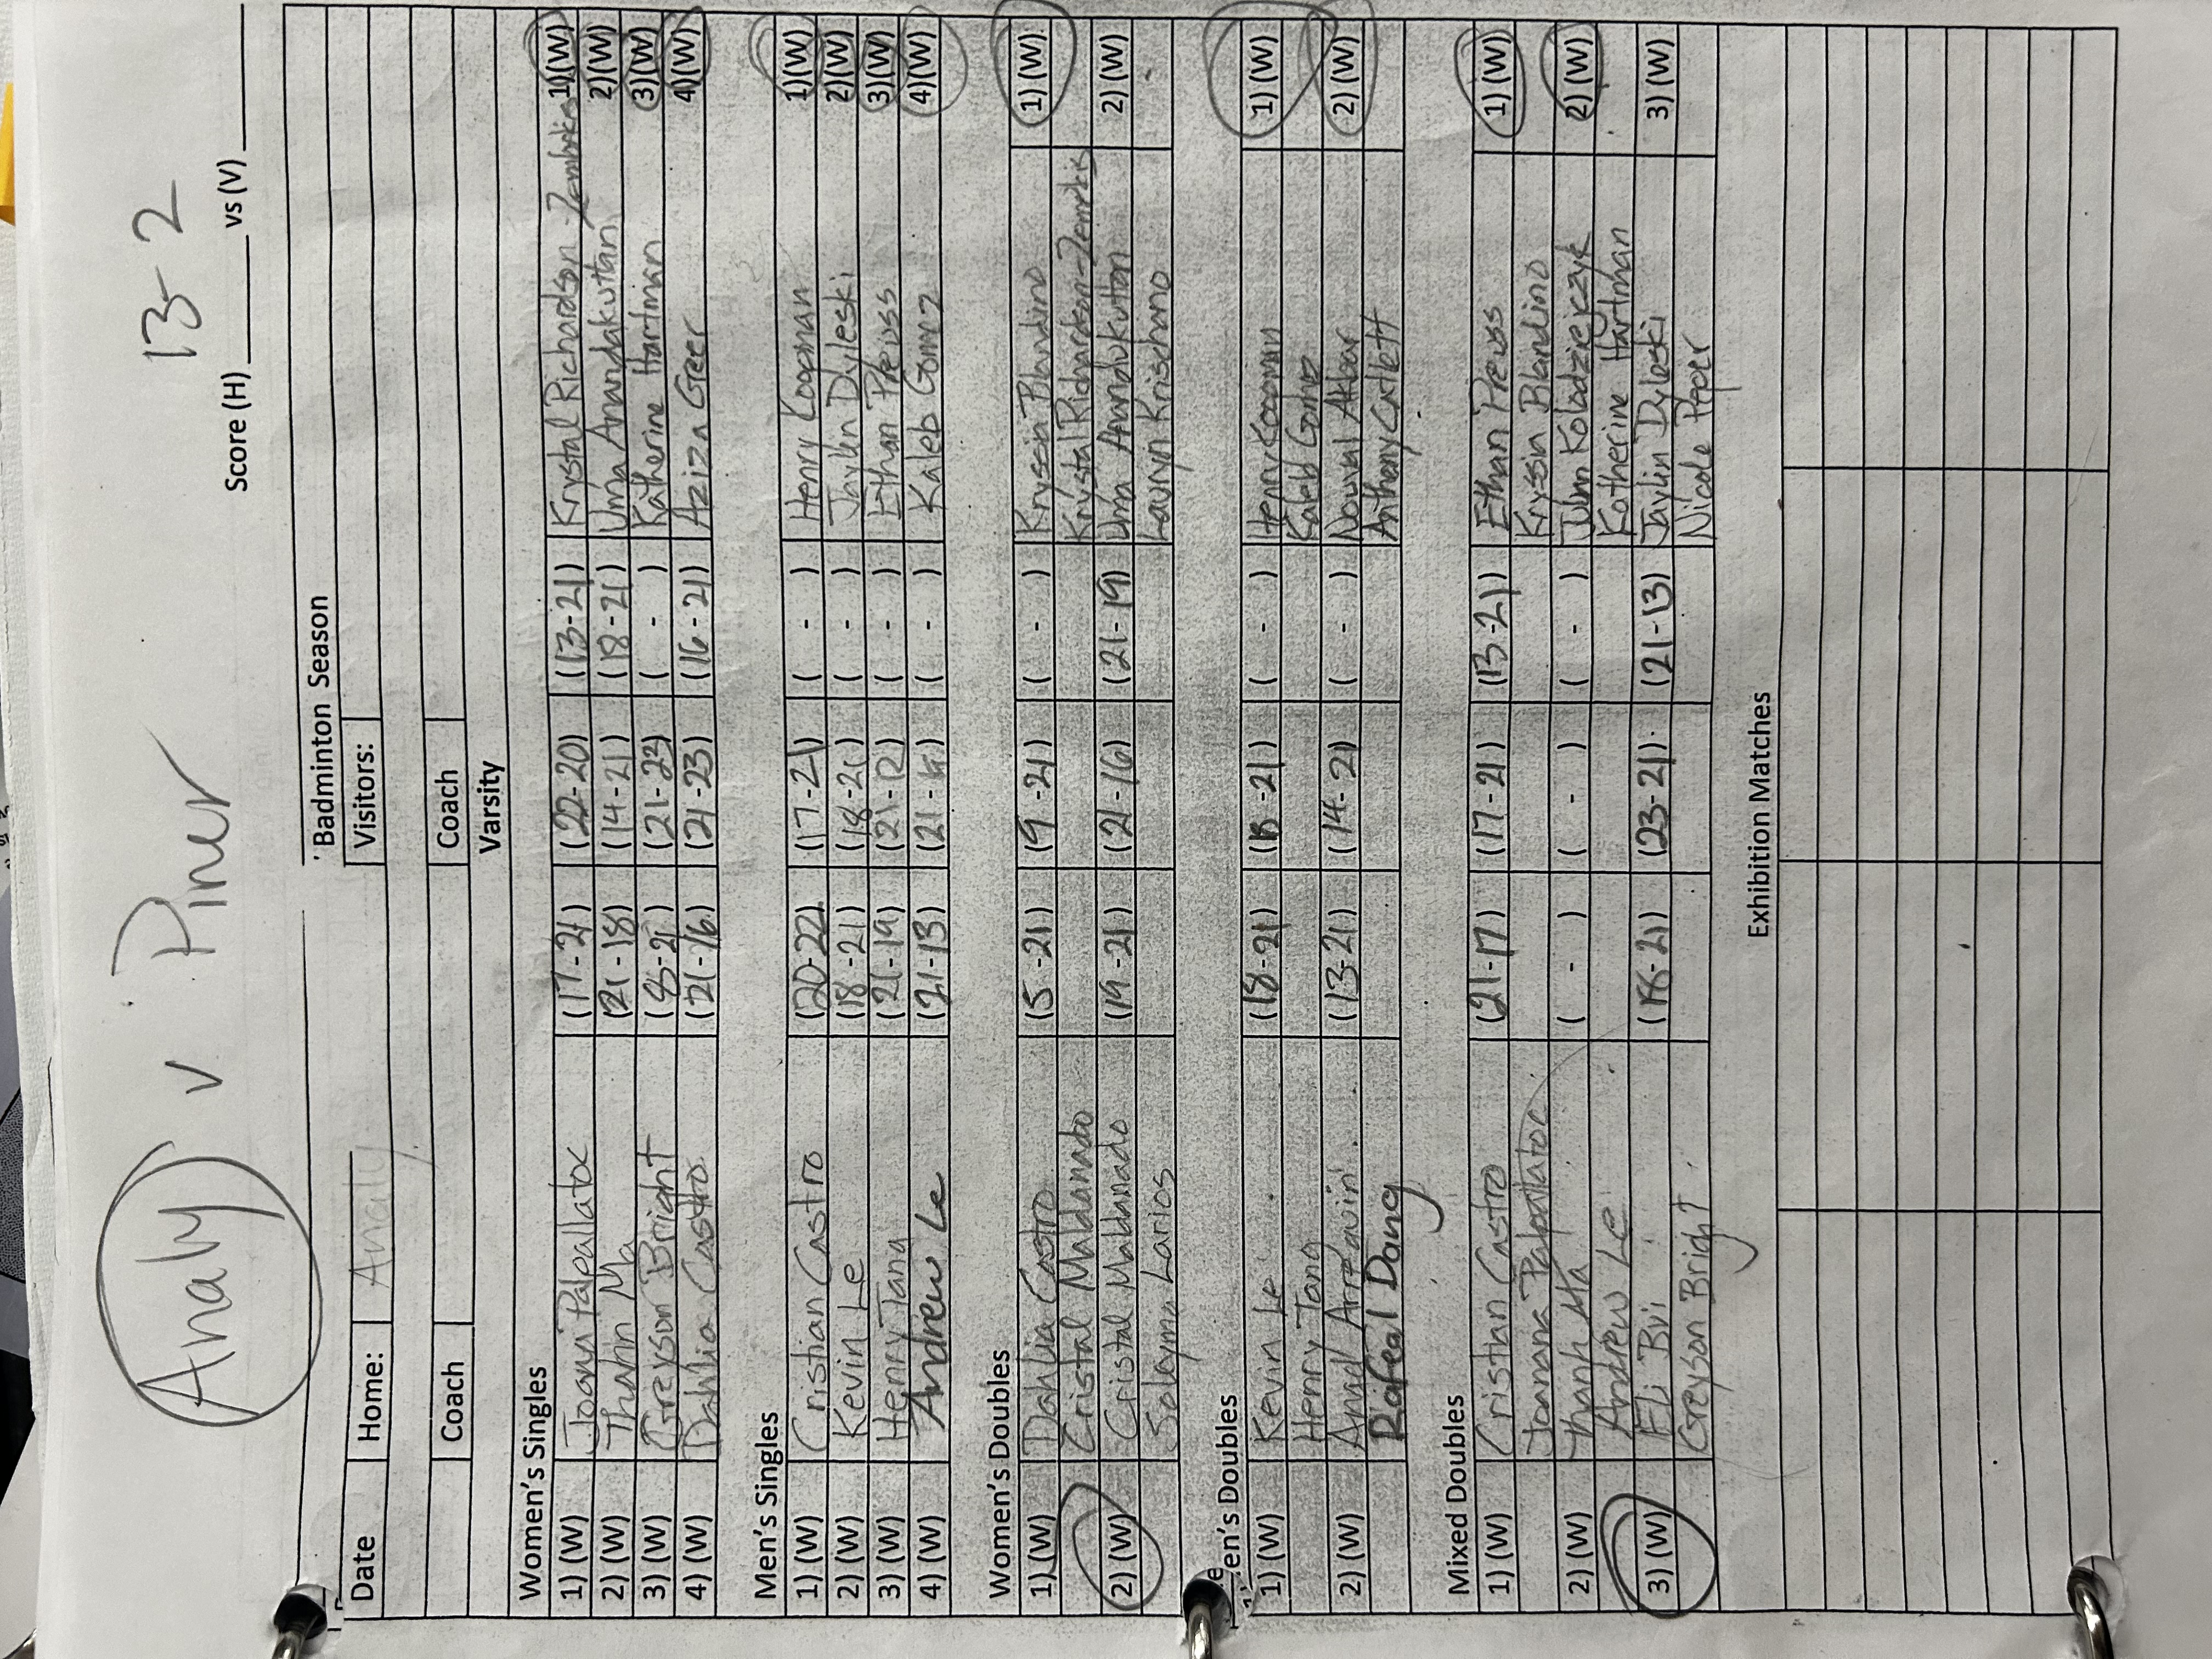 Analy v Piner 13-2
Score (H) vs (V)
Badminton Season
Date Home: Analy Visitors:
Coach Coach
Varsity
Women's Singles
1) (W) Joana Palpallatoc (17-21) (22-20) (13-21) Krystal Richardson-Zemlukis 1)(W)
2) (W) Thanh Ma (21-18) (14-21) (18-21) Uma Anandakuttan 2)(W)
3) (W) Greyson Bright (18-21) (21-23) ( - ) Katherine Hartman 3)(W)
4) (W) Dahlia Castro (21-16) (21-23) (16-21) Aziza Greer 4)(W)
Men's Singles
1) (W) Cristian Castro (20-22) (17-21) ( - ) Henry Koopman 1)(W)
2) (W) Kevin Le (18-21) (18-21) ( - ) Jaylin Dyleski 2)(W)
3) (W) Henry Tang (21-19) (21-12) ( - ) Ethan Preuss 3)(W)
4) (W) Andrew Le (21-13) (21- ) ( - ) Kaleb Gomez 4)(W)
Women's Doubles
1) (W) Dahlia Castro (15-21) (19-21) ( - ) Krysein Blandino 1) (W)
Cristal Maldanado Krystal Richardson-Zemlukis
2) (W) Cristal Maldanado (19-21) (21-16) (21-19) Uma Anandakuttan 2) (W)
Soleyma Larios Lauryn Krischano
Men's Doubles
1) (W) Kevin Le (18-21) (18-21) ( - ) Henry Koopman 1) (W)
Henry Tang Kaleb Gomez
2) (W) (13-21) (14-21) ( - ) Nouval Akbar 2) (W)
Rafeal Dang Anthony Catlett
Mixed Doubles
1) (W) Cristian Castro (21-17) (17-21) (13-21) Ethan Preuss 1) (W)
Joanna Palpallatoc Kryssin Blandino
2) (W) Thanh Ma ( - ) ( - ) ( - ) Kolodziejczyk 2) (W)
Andrew Le Katherine Hartman
3) (W) Eli Bui (18-21) (23-21) (21-13) Jaylin Dyleski 3) (W)
Greyson Bright Nicole Peper
Exhibition Matches